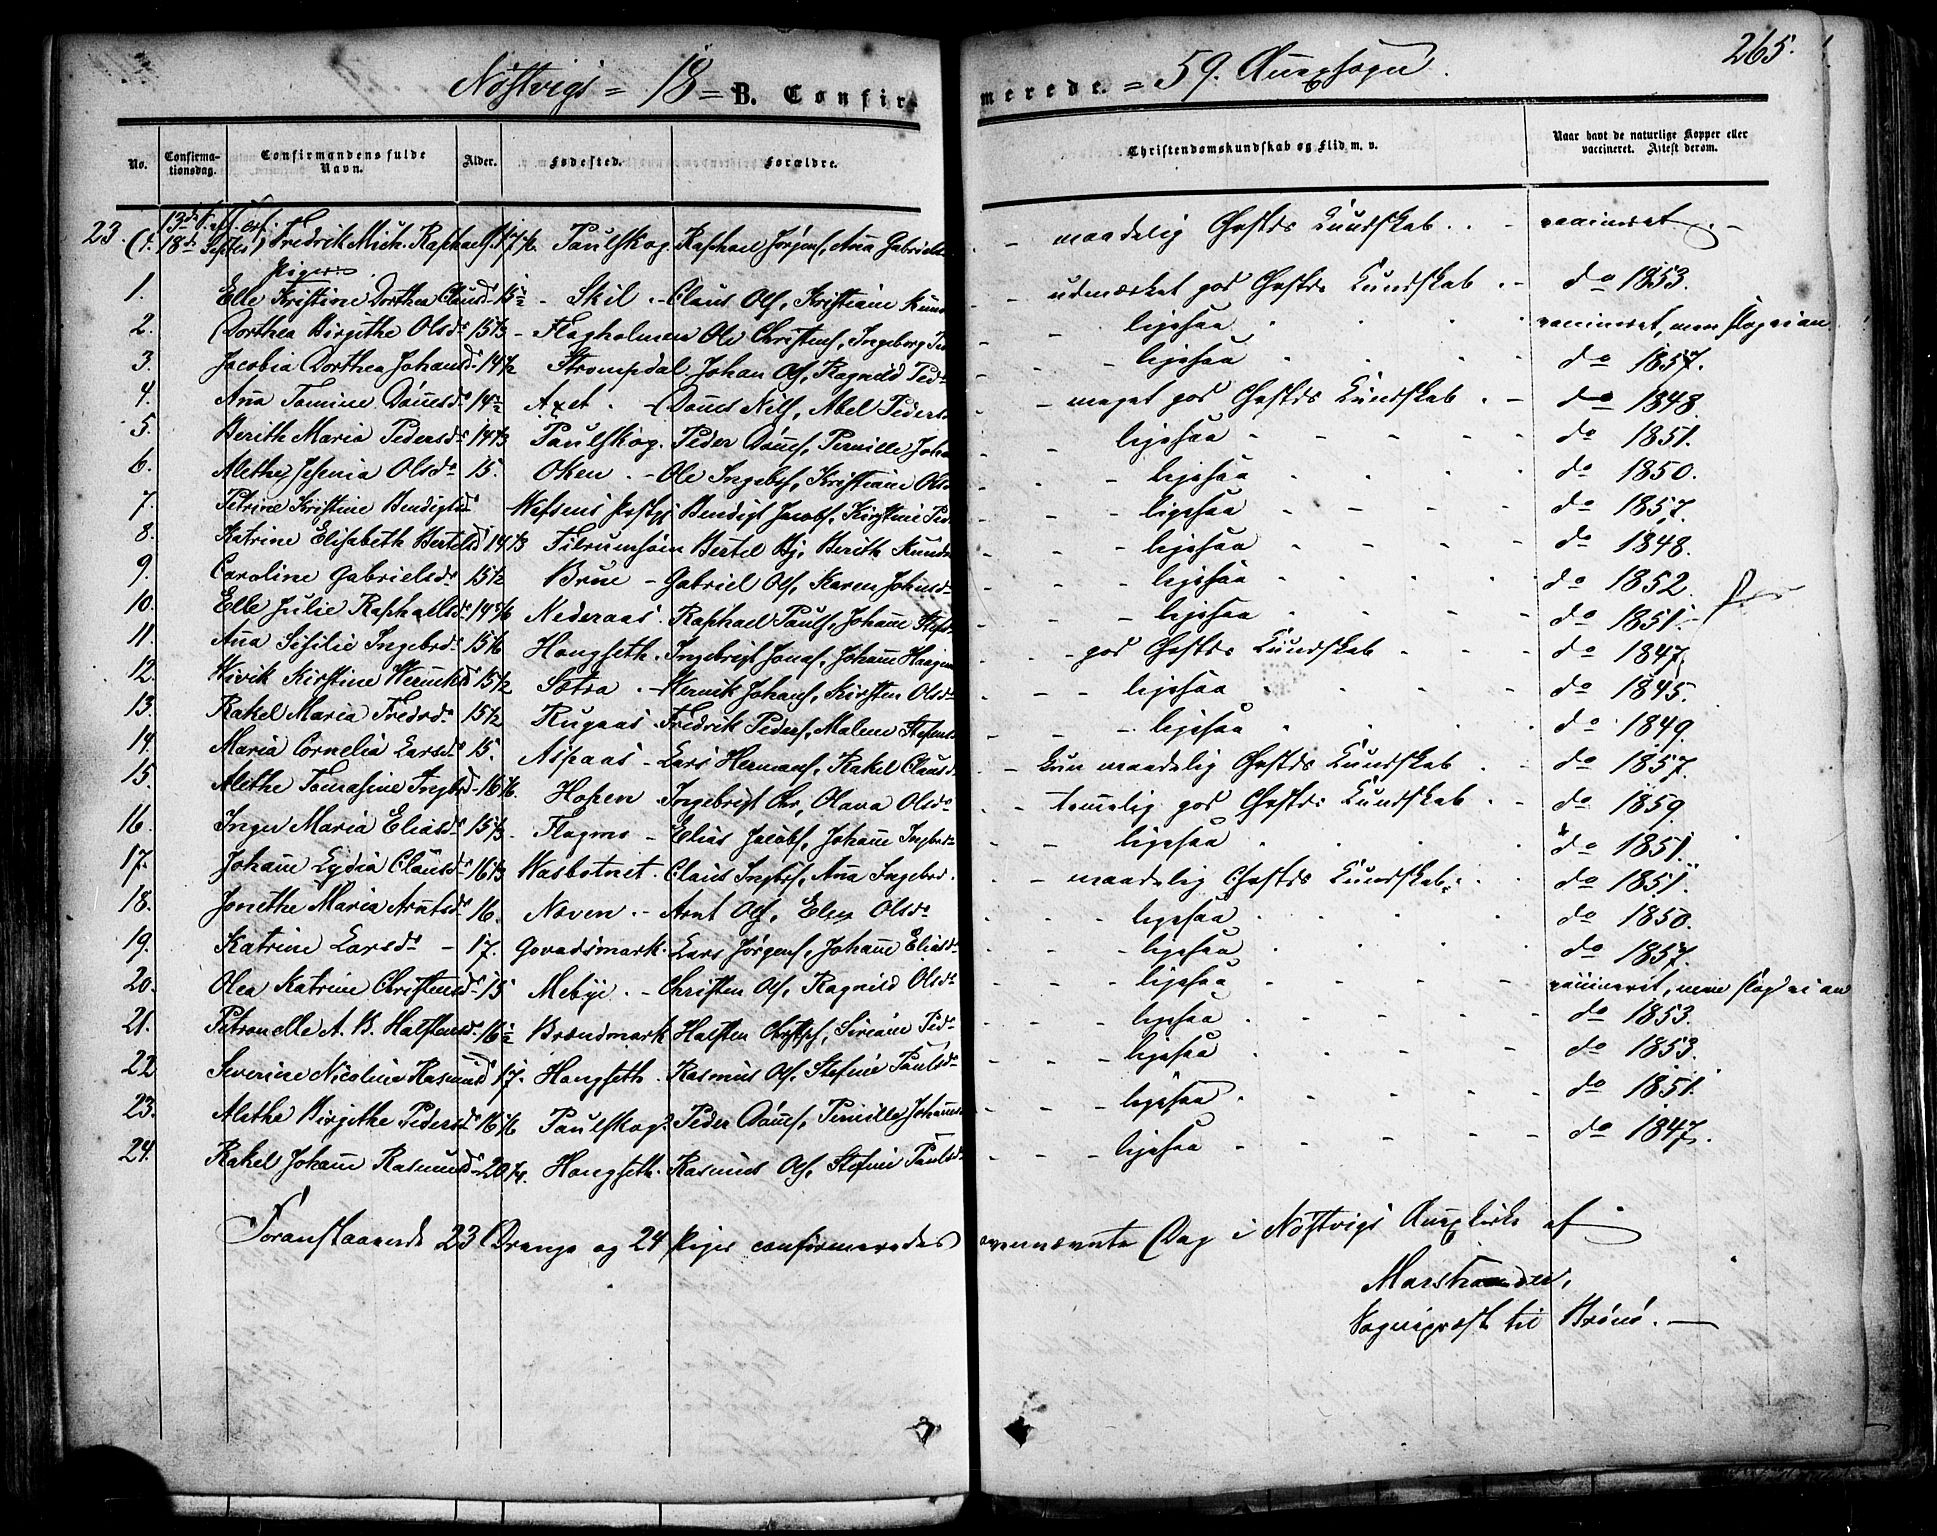 Nöstvigs = 18 = B. Confirmerede. = 59. Anexsogn. 265.
No. Confirmationsdag. Confirmandens fulde Navn. Alder. Fødested. Forældre. Christendomskundskab og Flid m. v. Naar havt de naturlige Kopper eller vaccineret. Attest derom.
23. 13de S. eft. (d: 18de Septbr) Fredrik Mich. Raphaels. 17 1/6 Paulskog Raphael Jörgens, Aña Gabrielsd. - maadelig Chstds Kundskab. - vaccineret -
Piger
1. Elle Kristine Dorthea Clausd. 15 1/2 - Skil. - Claus Ols, Kristiane Knuds - udmærket god Chstds Kundskab. - do 1853.
2. Dorthea Birgithe Olsd. 15 1/3 - Flagholmen Ole Christens, Ingeborg Ped - ligesaa vaccineret, men slog ei an
3. Jacobia Dorthea Johansd. 14 1/2 Strompdal Johan Ols, Ragnild Ped - ligesaa do 1857.
4. Aña Tomine Dônesd. 14 1/2 Axet. - Dônes Nils, Abel Peders - meget god Chstds Kundskab. - do 1848.
5. Berith Maria Pedersd. 14 2/3 Paulskog. Peder Dônes, Pernille Joha - ligesaa do 1851.
6. Alethe Jesenia Olsd. 15. Oken. - Ole Ingebs, Kristiane Ols - ligesaa do 1850.
7. Petrine Kristine Bendigtsd Wefsens Bendigt Jacobs, Kirstine Ped - ligesaa do 1857.
8. Katrine Elisabeth Bertelsd 14 2/3 Bertel Berith Knuds - ligesaa do 1848.
9. Caroline Gabrielsd. 15 1/2 Brue - Gabriel Ols, Karen Johnsd - ligesaa do 1852.
10. Elle Julie Raphaelsd. 14 5/6 Nederaas Raphael Pauls, Johañe - ligesaa do 1851.
11. Aña Sisilie Ingebrd. 15 1/6 Hongseth. Ingebrigt Jonas, Johañe - god Chstds Kundskab - do 1847.
12. Wivik Kirstine Wernikd 15 1/2 Sætra. - Wernik Johans, Kirsten Olsd - ligesaa do 1845.
13. Rakel Maria Fredrd. 15 1/2 Rugaas Fredrik Peders, Malene Stefens - ligesaa do 1849.
14. Maria Cornelia Larsd. 15. Aspaas - Lars Hermans, Rakel Claus - kun maadelig Chstds Kundskab - do 1857.
15. Alethe Tomasine Ingbrd. 16 1/6. Hopen - Ingebrigt Chr, Olava Olsd - temelig god Chstds Kundskab - do 1859.
16. Inger Maria Eliasd. 15 1/3. Flagmo - Elias Jacobs, Johañe Ingbrd - ligesaa do 1851.
17. Johañe Lydia Clausd. 16 2/3 Wasbotnet. Claus Ingbrs, Aña Ingebrd. - maadelig Chstds Kundskab. do 1851.
18. Jonethe Maria Arntsd. 16. Noven. - Arnt Ols, Elen Olsd - ligesaa do 1850.
19. Katrine Larsd. - 17. Govadsmark. Lars Jörgens, Johañe Eliasd - ligesaa do 1857.
20. Olea Katrine Christensd. 15 Mebye. - Christen Ols, Ragnild Olsd - ligesaa vaccineret, men slog ei an
21. Petronelle A. B. Halstensd. 16 1/2 Brændmark Halsten Sirianne Ped - ligesaa do 1853.
22 Severine Nicoline Rasmusd 17. Hongseth. Rasmus Ols, Stefine Paulsd - ligesaa do 1853.
23. Alethe Birgithe Pedersd. 16 1/6 Paulskog. Peder Dônes, Pernille Johañes - ligesaa do 1851.
24. Rakel Johañe Rasmusd. 20 1/4. Hongseth. Rasmus Ols, Stefine Paulsd - ligesaa do 1847.
Foranstaaende 23 Drenge og 24 Piger confirmeredes ovennævnte Dag i Nöstvigs Anexkirke af
Marstrander,
Sognepræst til Brönö. -